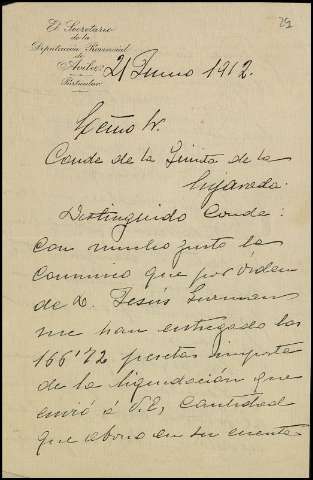 29
El Secretario
de la
Diputación Provincial
de
Avila
Particular
21 Junio 1912.
Excmo Sr.
Conde de la Quinta de la
Enjarada.
Distinguido Conde:
Con mucho gusto le
comunico que por orden
de D. Jesús
me han entregado las
166'72 pesetas importe
de la liquidación que
envió á V.E, cantidad
que abono en su cuenta